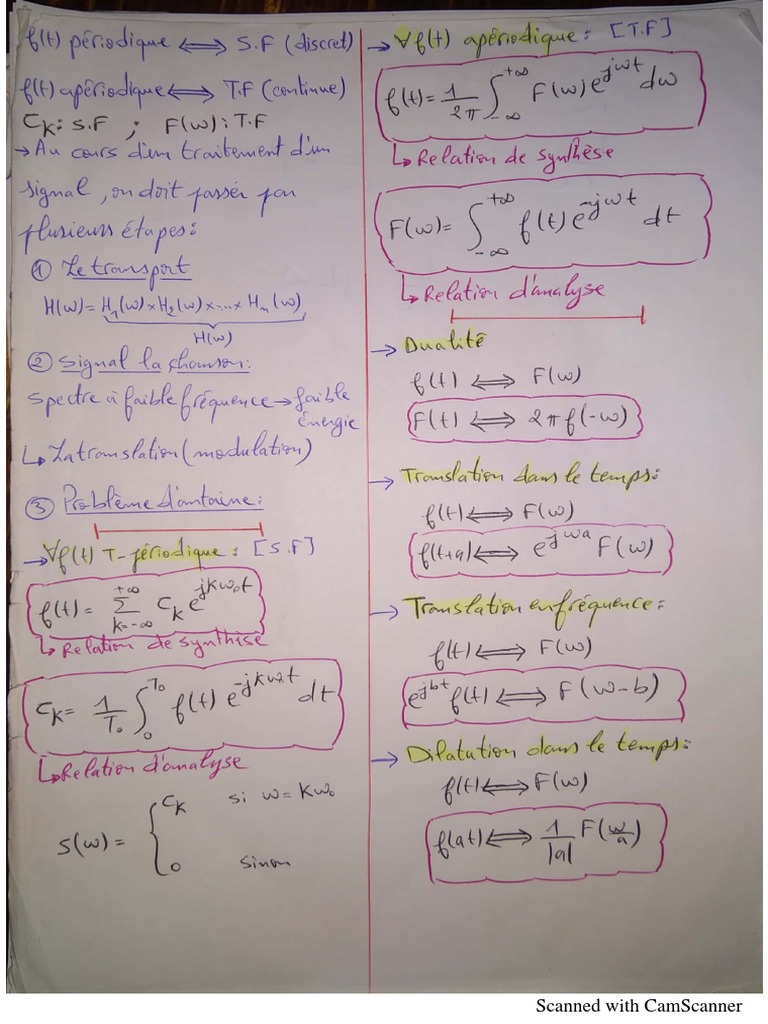 f(t) périodique ⟺ S.F (discret)
f(t) apériodique ⟺ T.F (continue)
C_K : S.F ; F(w) : T.F
→ Au cours d'un traitement d'un
signal, on doit passer par
plusieurs étapes :
① Le transport
H(w) = H_1(w) × H_2(w) × ... × H_n(w)
H(w)
② Signal la chanson :
Spectre à faible fréquence → faible
énergie
↳ La translation (modulation)
③ Problème d'antaine :
→ ∀f(t) T-périodique : [S.F]
f(t) = ∑_{k=-∞}^{+∞} C_K e^{jkw_0t}
↳ Relation de synthèse
C_K = 1/T_0 ∫_0^{T_0} f(t) e^{-jkw_0t} dt
↳ Relation d'analyse
S(w) = { C_K si w = Kw_0
0 sinon
→ ∀f(t) apériodique : [T.F]
f(t) = 1/2π ∫_{-∞}^{+∞} F(w) e^{jwt} dw
↳ Relation de synthèse
F(w) = ∫_{-∞}^{+∞} f(t) e^{-jwt} dt
↳ Relation d'analyse
→ Dualité
f(t) ⟺ F(w)
F(t) ⟺ 2πf(-w)
→ Translation dans le temps :
f(t) ⟺ F(w)
f(t+a) ⟺ e^{jwa} F(w)
→ Translation en fréquence :
f(t) ⟺ F(w)
e^{jbt} f(t) ⟺ F(w-b)
→ Dilatation dans le temps :
f(t) ⟺ F(w)
f(at) ⟺ 1/|a| F(w/a)
Scanned with CamScanner